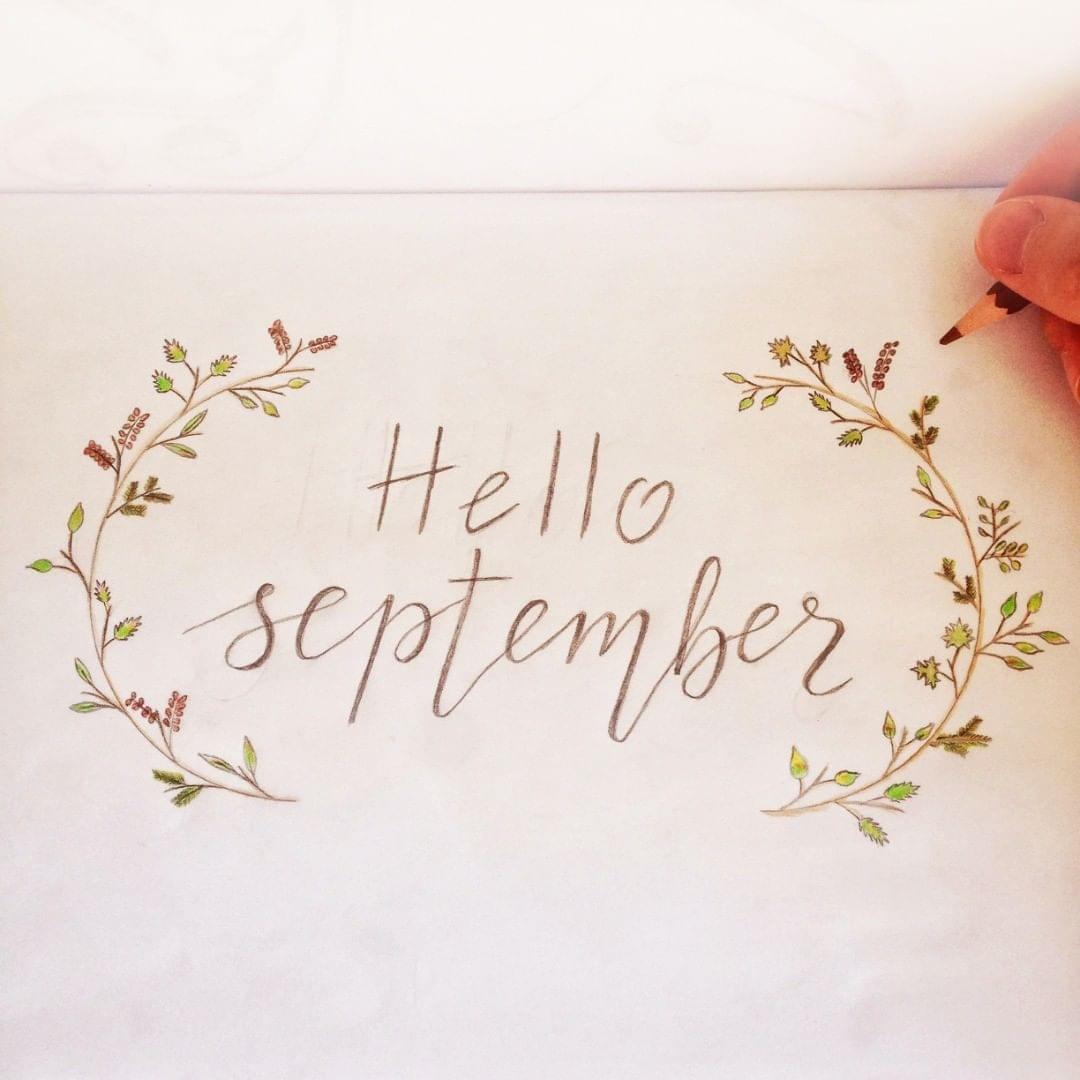 Hello
september